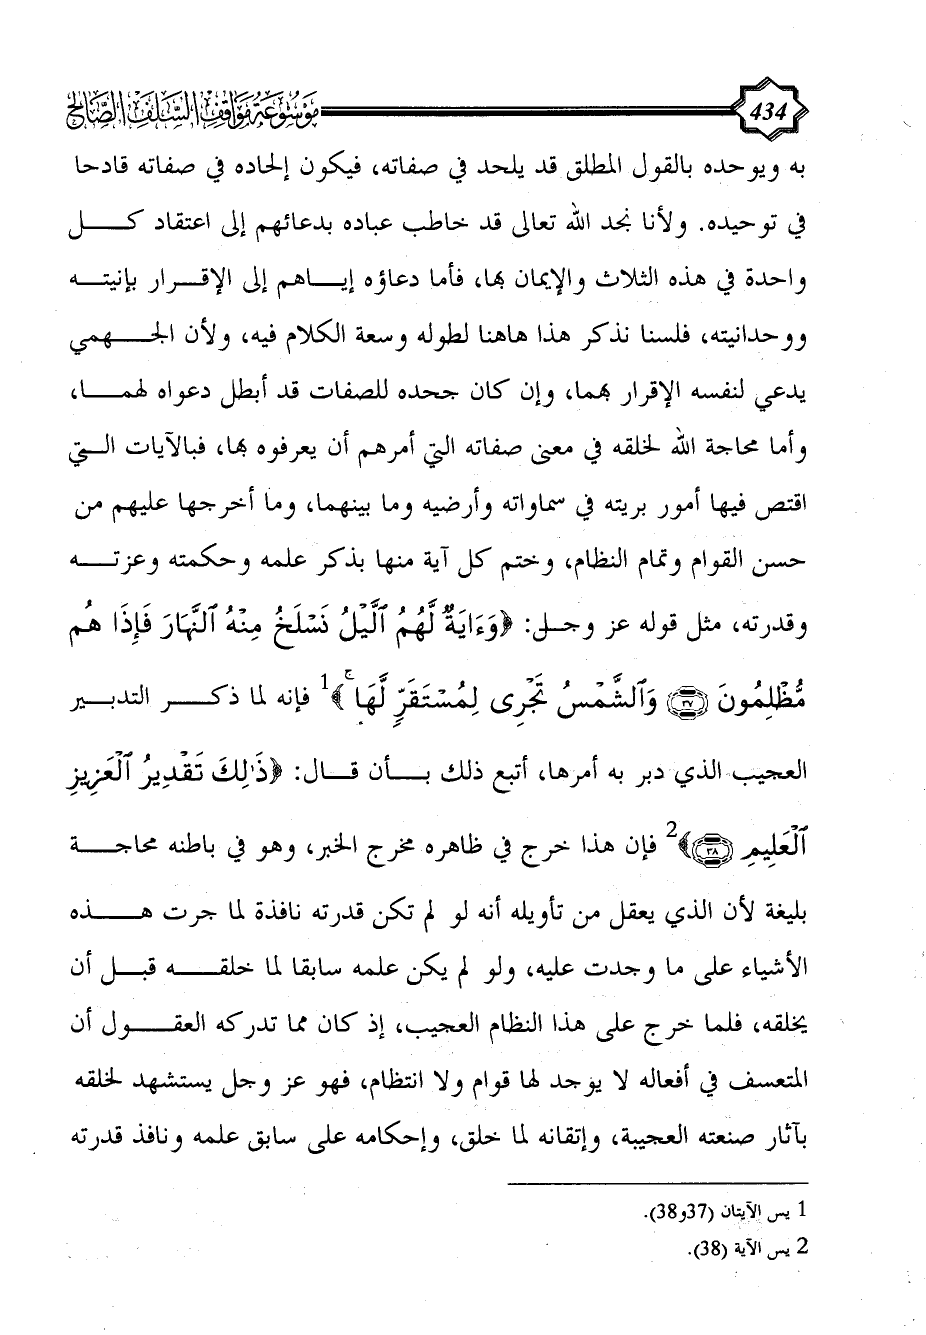 434 موسوعة مواقف السلف الصالح
به ويوحده بالقول المطلق قد يلحد في صفاته، فيكون إلحاده في صفاته قادحا
في توحيده. ولأنا نجد الله تعالى قد خاطب عباده بدعائهم إلى اعتقاد كل
واحدة في هذه الثلاث والإيمان بها، فأما دعاؤه إياهم إلى الإقرار بإنيته
ووحدانيته، فلسنا نذكر هذا هاهنا لطوله وسعة الكلام فيه، ولأن الجهمي
يدعي لنفسه الإقرار بهما، وإن كان جحده للصفات قد أبطل دعواه لهما،
وأما محاجة الله لخلقه في معنى صفاته التي أمرهم أن يعرفوه بها، فبالآيات التي
اقتص فيها أمور بريته في سماواته وأرضيه وما بينهما، وما أخرجها عليهم من
حسن القوام وتمام النظام، وختم كل آية منها بذكر علمه وحكمته وعزته
وقدرته، مثل قوله عز وجل: ﴿وَءَايَةٌ لَّهُمُ ٱلَّيْلُ نَسْلَخُ مِنْهُ ٱلنَّهَارَ فَإِذَا هُم
مُّظْلِمُونَ ٣٧ وَٱلشَّمْسُ تَجْرِى لِمُسْتَقَرٍّ لَّهَا ۚ﴾1 فإنه لما ذكر التدبير
العجيب الذي دبر به أمرها، أتبع ذلك بأن قال: ﴿ذَٰلِكَ تَقْدِيرُ ٱلْعَزِيزِ
ٱلْعَلِيمِ ٣٨﴾2 فإن هذا خرج في ظاهره مخرج الخبر، وهو في باطنه محاجة
بليغة لأن الذي يعقل من تأويله أنه لو لم تكن قدرته نافذة لما جرت هذه
الأشياء على ما وجدت عليه، ولو لم يكن علمه سابقا لما خلقه قبل أن
يخلقه، فلما خرج على هذا النظام العجيب، إذ كان مما تدركه العقول أن
المتعسف في أفعاله لا يوجد لها قوام ولا انتظام، فهو عز وجل يستشهد لخلقه
بآثار صنعته العجيبة، وإتقانه لما خلق، وإحكامه على سابق علمه ونافذ قدرته
1 يس الآيتان (37و38).
2 يس الآية (38).